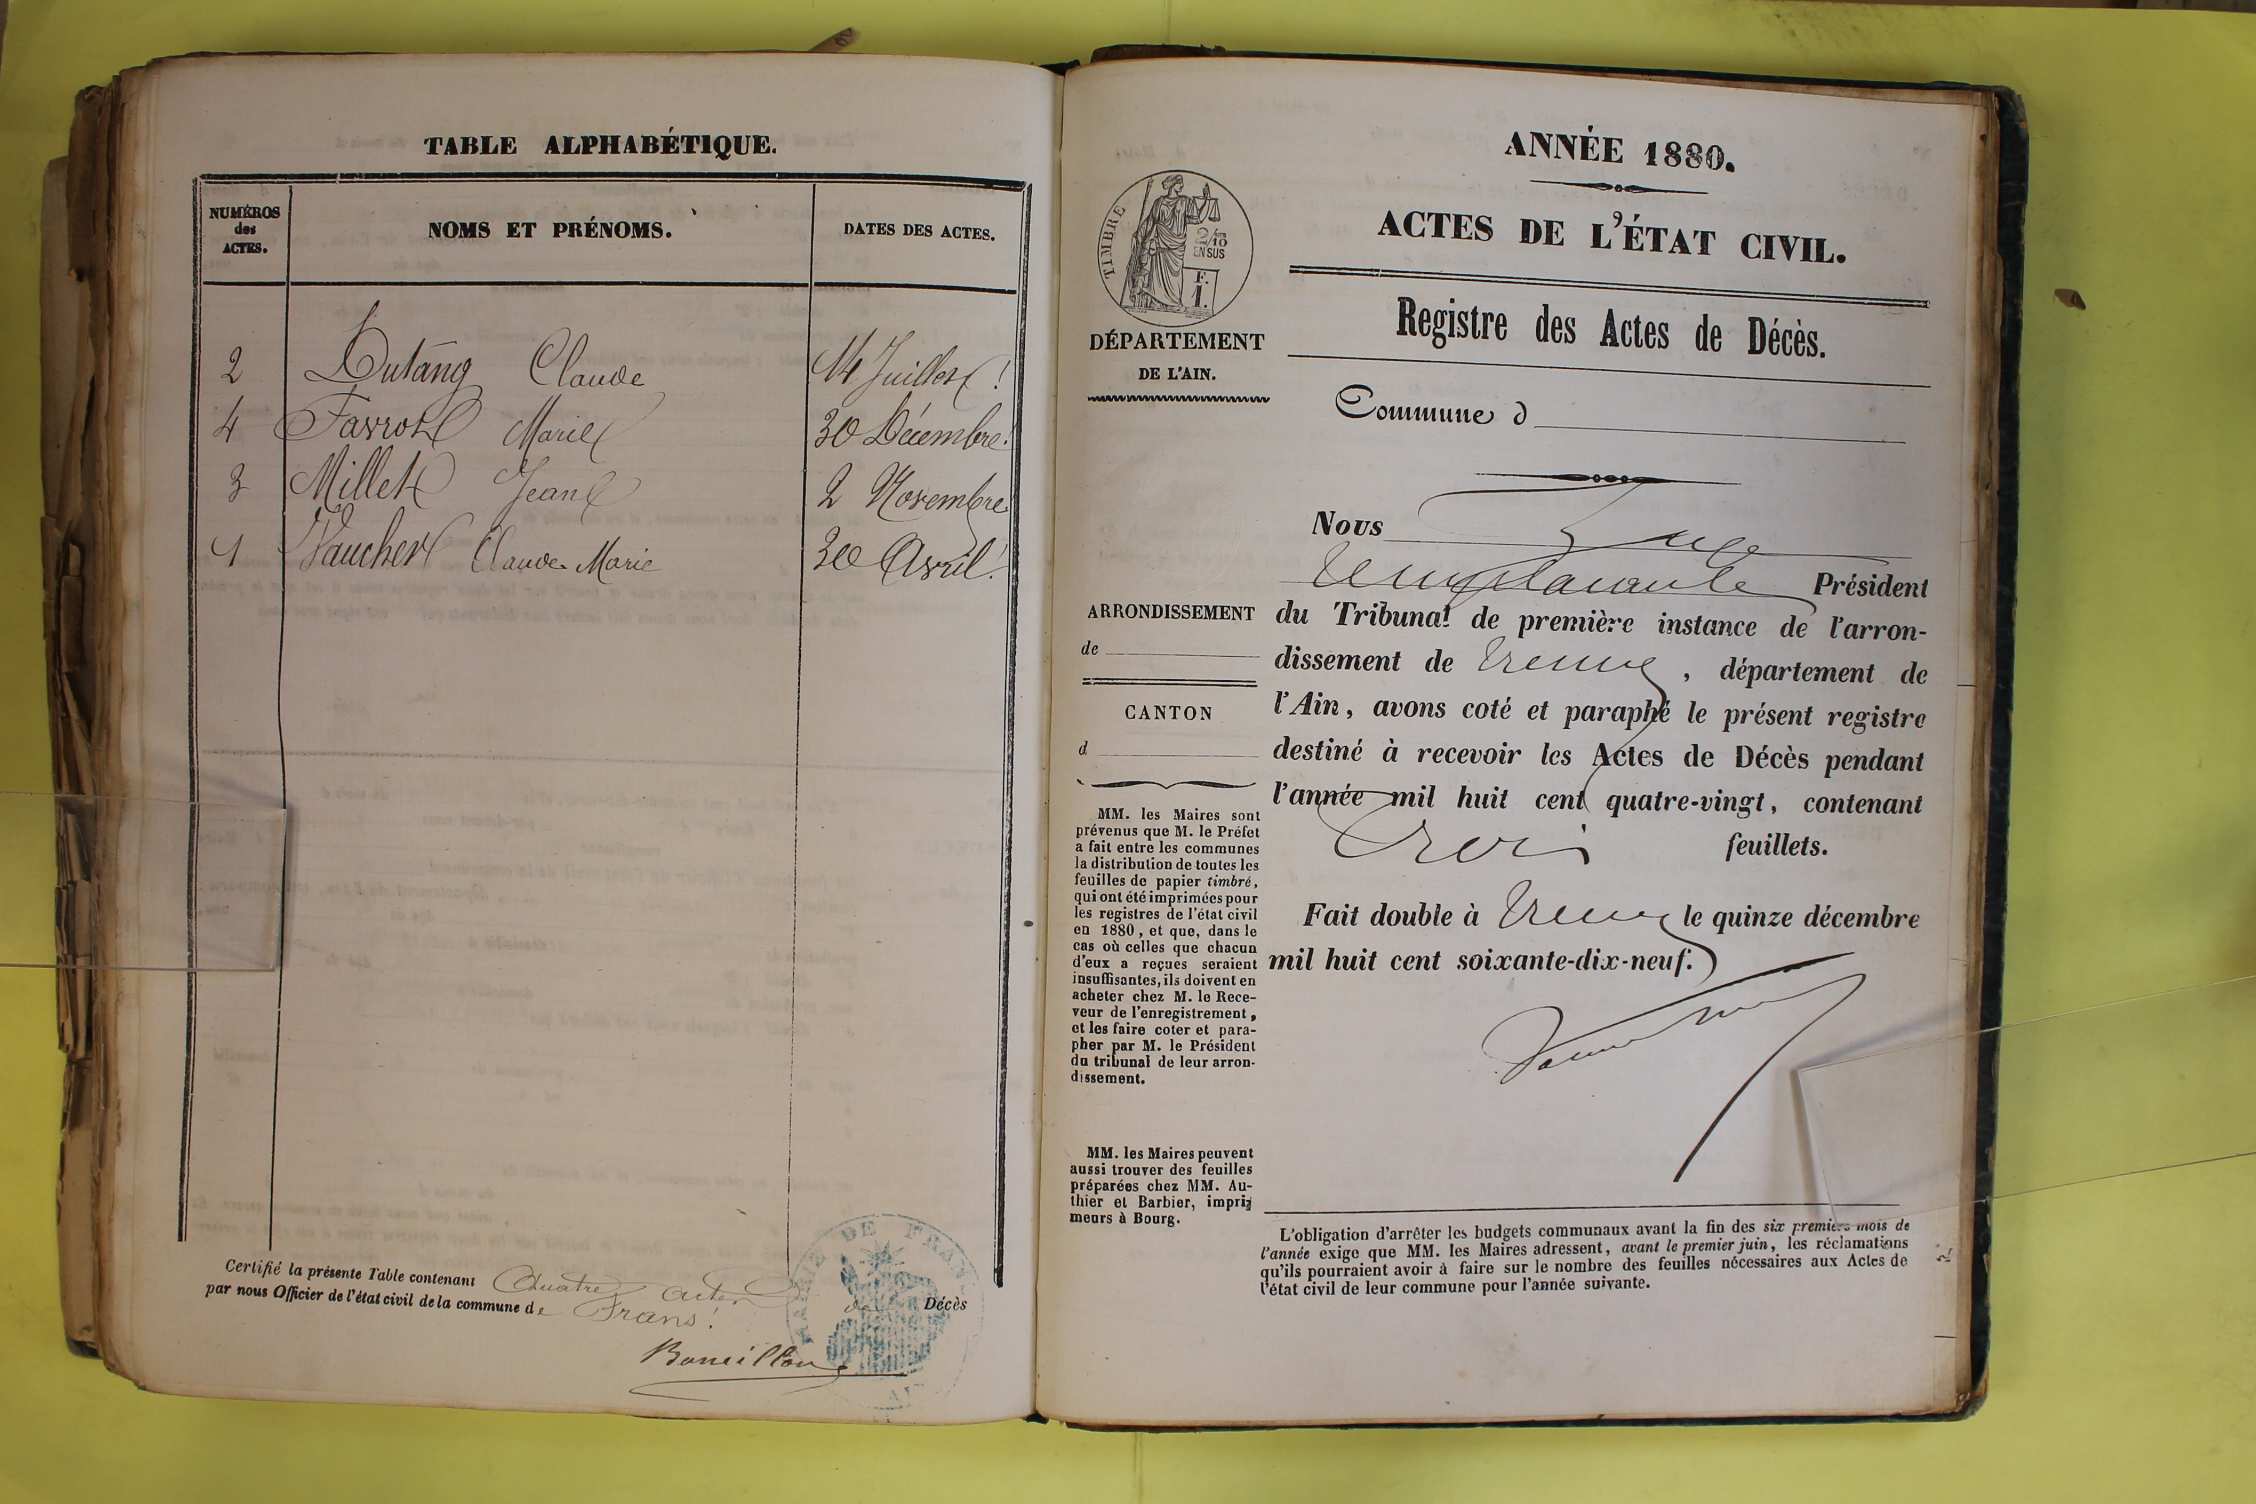 TABLE ALPHABÉTIQUE.
NUMÉROS des ACTES.
NOMS ET PRÉNOMS.
DATES DES ACTES.
2 Dutang Claude 14 Juillet!
4 Favrot Marie 30 Décembre!
3 Millet Jean 2 Novembre
1 Vaucher Claude Marie 30 Avril!
Certifié la présente Table contenant Quatre actes de Décès
par nous Officier de l'état civil de la commune de Frans!
MAIRIE DE FRANS
AIN
ANNÉE 1880.
ACTES DE L'ÉTAT CIVIL.
Registre des Actes de Décès.
TIMBRE
2/10
EN SUS
F.
1.
DÉPARTEMENT
DE L'AIN.
Commune d
ARRONDISSEMENT
de
CANTON
d
MM. les Maires sont
prévenus que M. le Préfet
a fait entre les communes
la distribution de toutes les
feuilles de papier timbré,
qui ont été imprimées pour
les registres de l'état civil
en 1880, et que, dans le
cas où celles que chacun
d'eux a reçues seraient
insuffisantes, ils doivent en
acheter chez M. le Rece-
veur de l'enregistrement,
et les faire coter et para-
pher par M. le Président
du tribunal de leur arron-
dissement.
MM. les Maires peuvent
aussi trouver des feuilles
préparées chez MM. Au-
thier et Barbier, impri-
meurs à Bourg.
Nous Juge
Président
du Tribunal de première instance de l'arron-
dissement de Trévoux, département de
l'Ain, avons coté et paraphé le présent registre
destiné à recevoir les Actes de Décès pendant
l'année mil huit cent quatre-vingt, contenant
trois feuillets.
Fait double à Trévoux le quinze décembre
mil huit cent soixante-dix-neuf.
L'obligation d'arrêter les budgets communaux avant la fin des six premiers mois de
l'année exige que MM. les Maires adressent, avant le premier juin, les réclamations
qu'ils pourraient avoir à faire sur le nombre des feuilles nécessaires aux Actes de
l'état civil de leur commune pour l'année suivante.